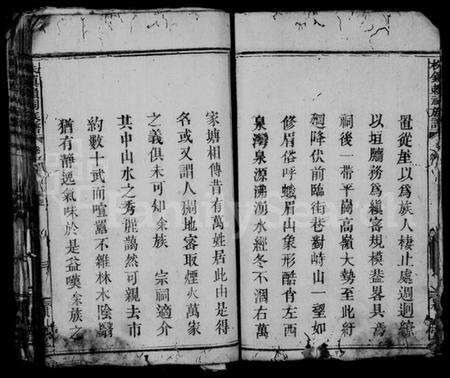 置從堊以為族人棲止處迴迴繚
以垣牆務為縝密規模益畧具焉
祠後一帶平崗高嶺大勢至此紆
廻降伏前臨街巷對峙山一望如
修眉俗呼蛾眉山象形酷肖左西
泉灣泉源沸湧水經冬不涸右萬
家塘相傳昔有萬姓居此由是得
名或又謂人稠地窄取煙火萬家
之義俱未可知余族 宗祠適介
其中山水之秀龍蔥然可親去市
約數十武而喧囂不雜林木陰翳
猶有靜逸氣味於是益嘆余族之